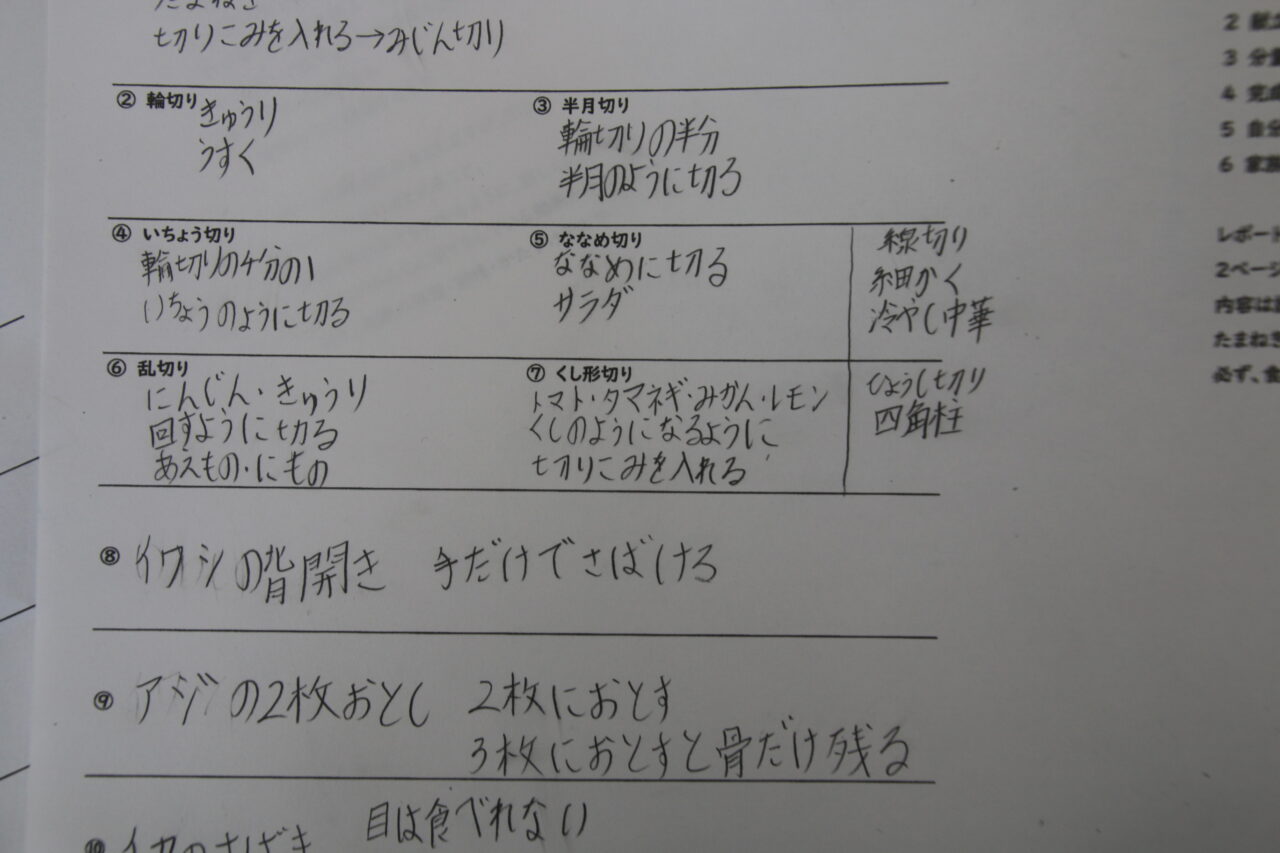 たまねぎ
切りこみを入れる→みじん切り
② 輪切り きゅうり
うすく
③ 半月切り
輪切りの半分
半月のように切る
④ いちょう切り
輪切りの4分の1
いちょうのように切る
⑤ ななめ切り
ななめに切る
サラダ
線切り
細かく
冷やし中華
⑥ 乱切り
にんじん・きゅうり
回すように切る
あえもの・にもの
⑦ くし形切り
トマト・タマネギ・みかん・レモン
くしのようになるように
切りこみを入れる
ひょうし切り
四角柱
⑧ イワシの背開き 手だけでさばける
⑨ アジの2枚おとし 2枚におとす
3枚におとすと骨だけ残る
⑩ イカのさばき
目は食べれない
2
3 分
4 完成
5 自分
6 家族
レポート
2ページ
内容は
たまねぎ
必ず、食